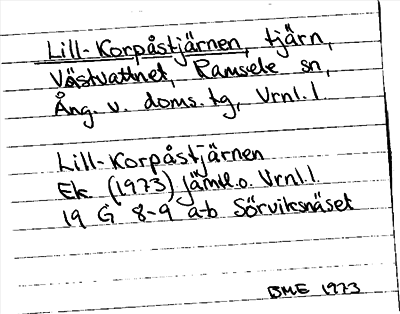 Lill-Korpåstjärnen, tjärn,
Västvattnet, Ramsele sn,
Ång. v. doms. tg, Vrnl. l.
Lill-Korpåstjärnen
Ek. (1973) Jämtl. o. Vrnl. l.
19 G 8-9 a-b Sörviksnäset
BME 1973